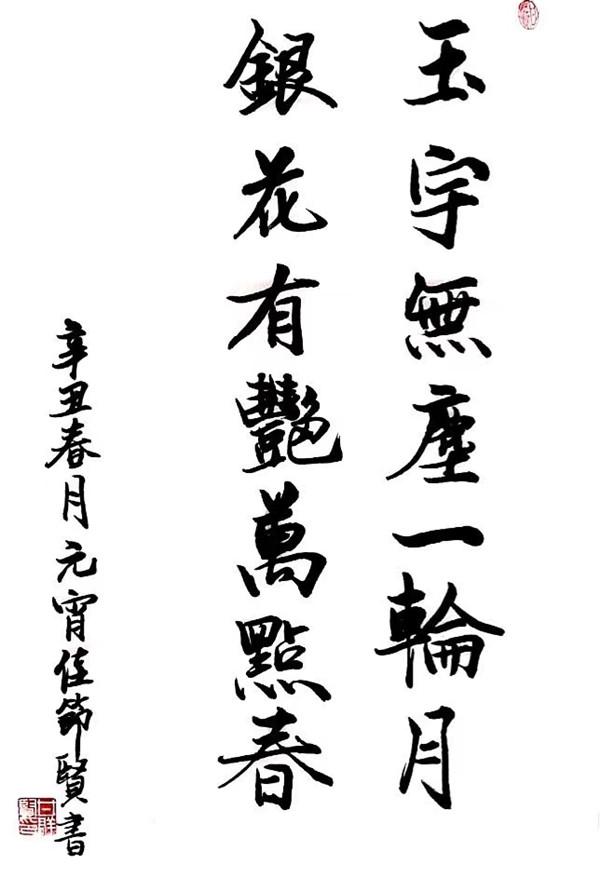 玉宇無塵一輪月
銀花有艷萬點春
辛丑春月元宵佳節賢書